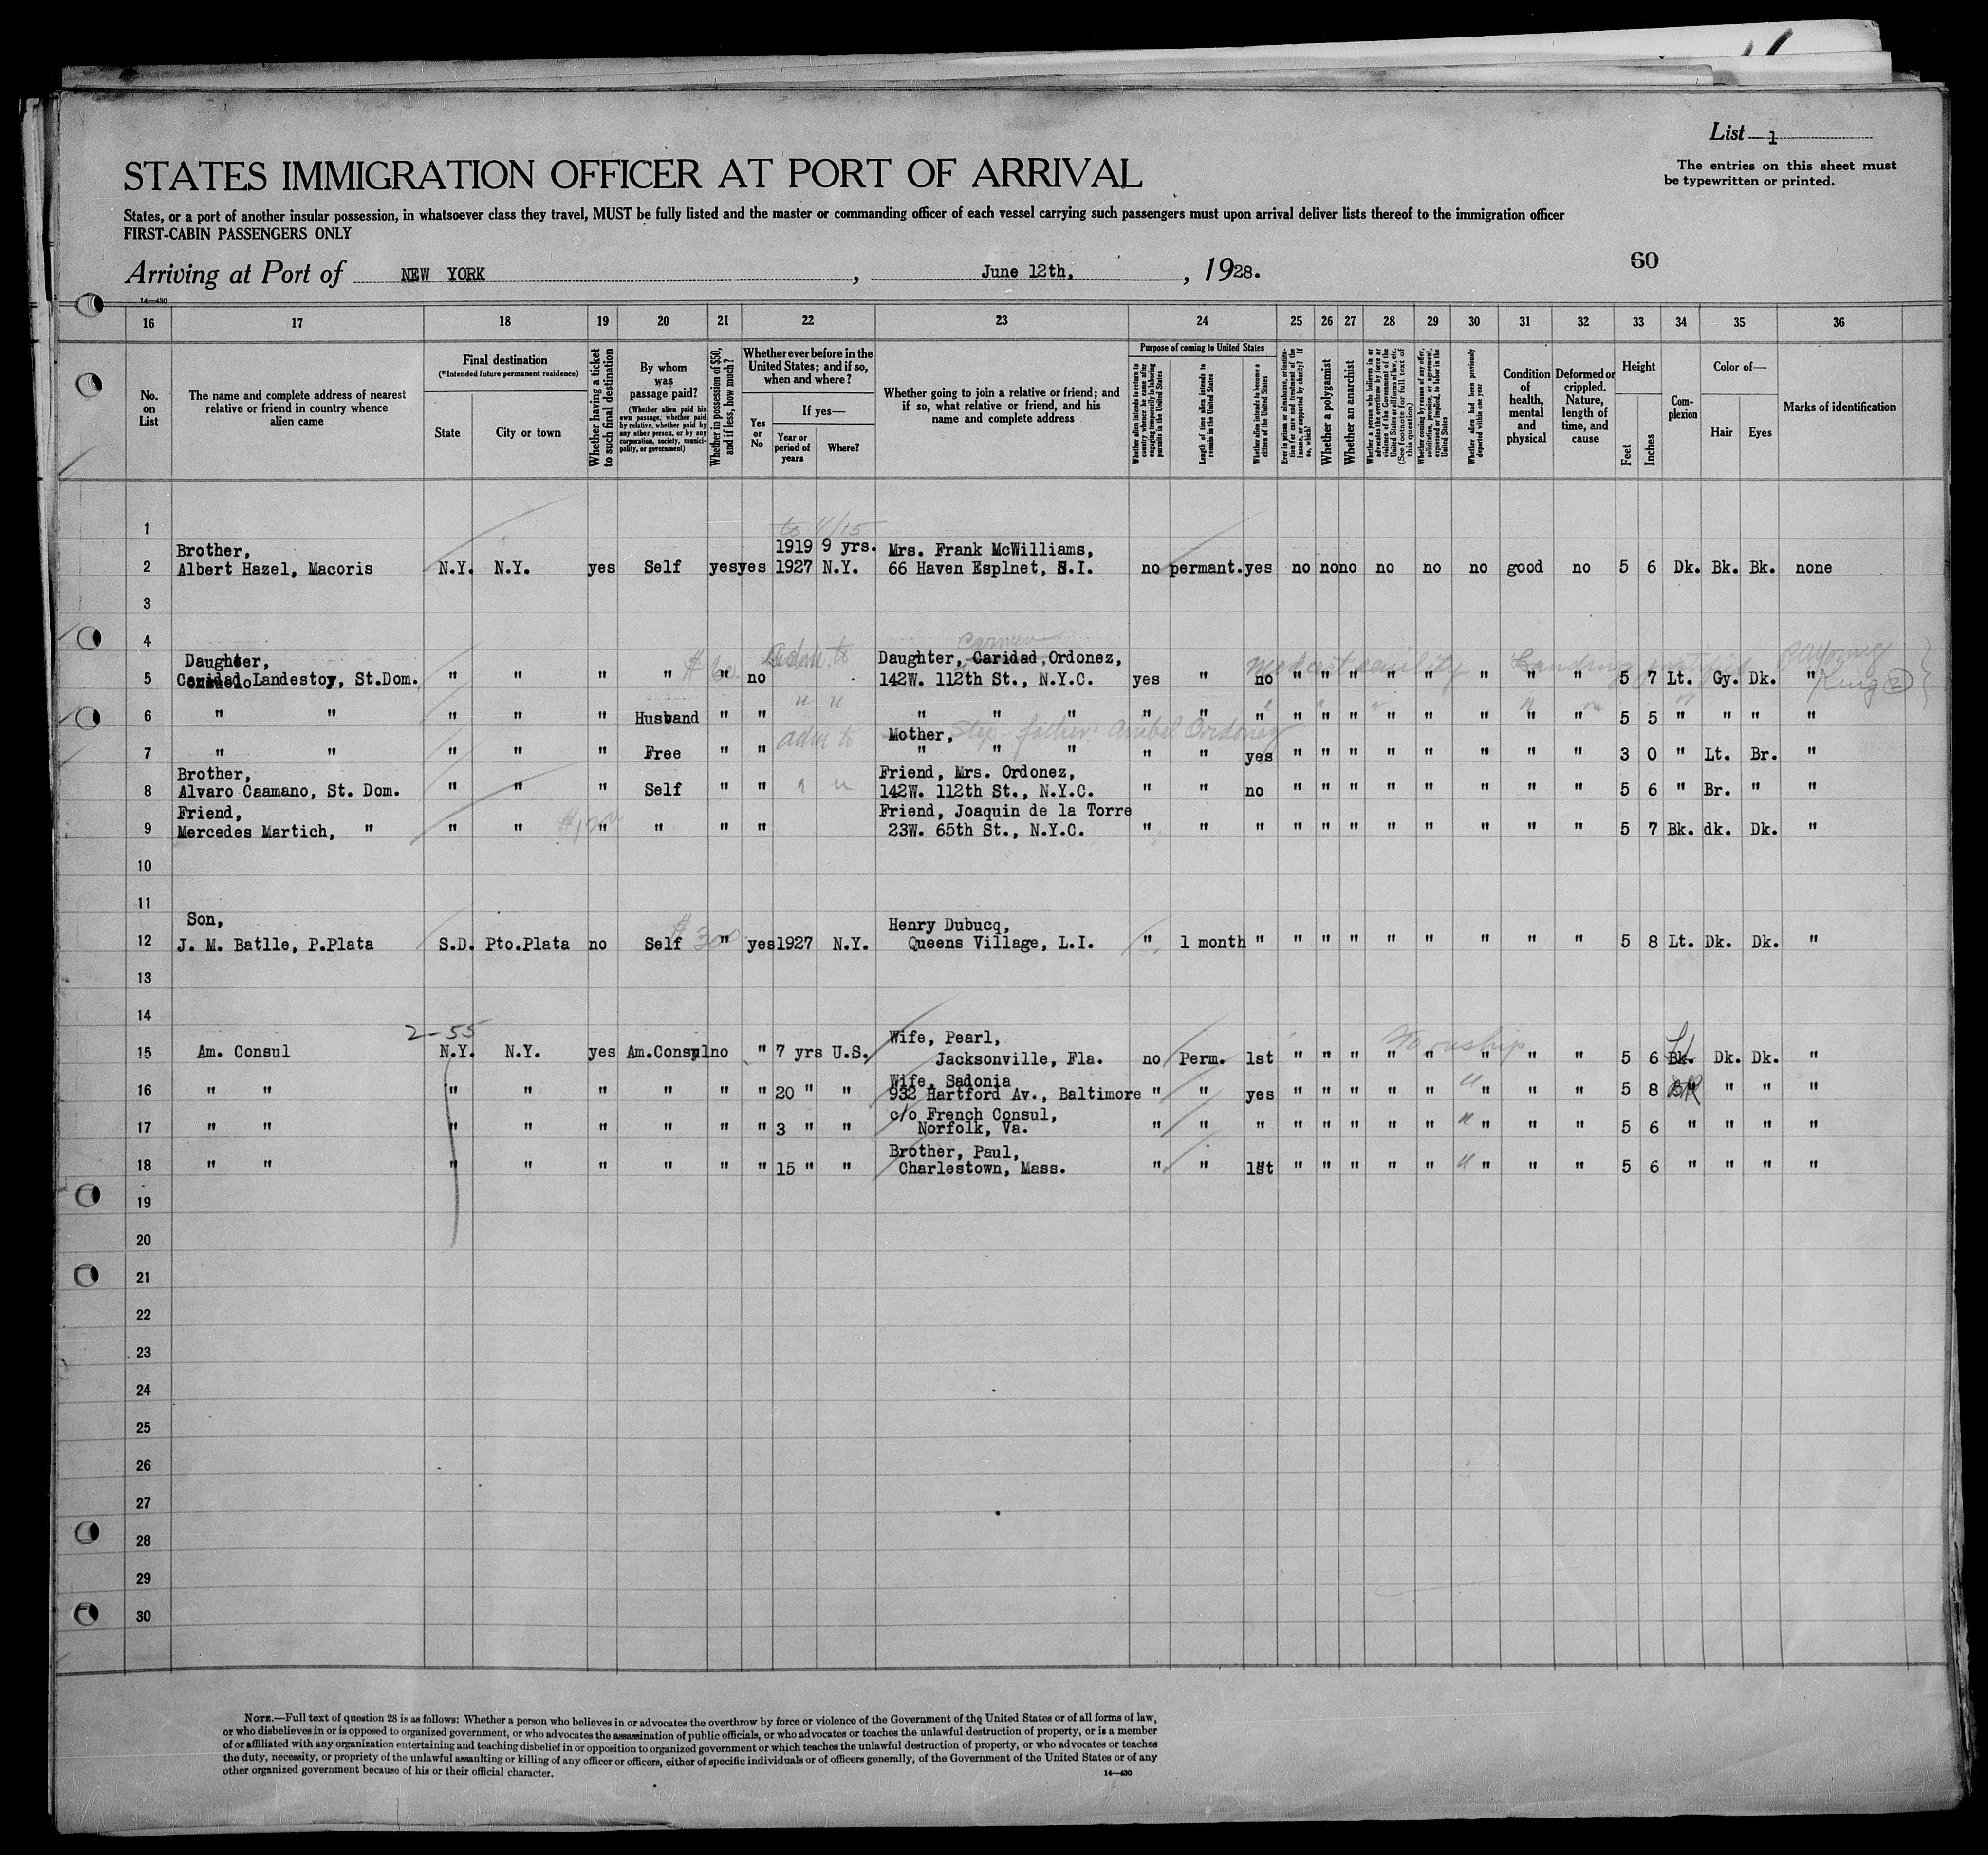 List 1
STATES IMMIGRATION OFFICER AT PORT OF ARRIVAL
The entries on this sheet must
be typewritten or printed.
States, or a port of another insular possession, in whatsoever class they travel, MUST be fully listed and the master or commanding officer of each vessel carrying such passengers must upon arrival deliver lists thereof to the immigration officer
FIRST-CABIN PASSENGERS ONLY
60
Arriving at Port of NEW YORK, June 12th, , 1928.
14—430
16 17 18 19 20 21 22 23 24 25 26 27 28 29 30 31 32 33 34 35 36
No. on List
The name and complete address of nearest relative or friend in country whence alien came
Final destination
(*Intended future permanent residence)
State
City or town
Whether having a ticket to such final destination
By whom was passage paid?
(Whether alien paid his own passage, whether paid by relative, whether paid by any other person, or by any corporation, society, municipality, or government)
Whether in possession of $50, and if less, how much?
Whether ever before in the United States; and if so, when and where?
Yes or No
If yes—
Year or period of years
Where?
Whether going to join a relative or friend; and if so, what relative or friend, and his name and complete address
Purpose of coming to United States
Whether alien intends to return to country whence he came after engaging temporarily in laboring pursuits in the United States
Length of time alien intends to remain in the United States
Whether alien intends to become a citizen of the United States
Ever in prison or almshouse, or institution for care and treatment of the insane, or supported by charity? If so, which?
Whether a polygamist
Whether an anarchist
Whether a person who believes in or advocates the overthrow by force or violence of the Government of the United States or all forms of law, etc. (See footnote for full text of this question)
Whether coming by reason of any offer, solicitation, promise, or agreement, expressed or implied, to labor in the United States
Whether alien had been previously deported within one year
Condition of health, mental and physical
Deformed or crippled. Nature, length of time, and cause
Height
Feet
Inches
Complexion
Color of—
Hair
Eyes
Marks of identification
1
to 4/15
Brother, 1919 9 yrs. Mrs. Frank McWilliams,
2 Albert Hazel, Macoris N.Y. N.Y. yes Self yes yes 1927 N.Y. 66 Haven Esplnet, S.I. no permant. yes no no no no no no good no 5 6 Dk. Bk. Bk. none
3
4
Daughter, Adm to Daughter, Caridad, Ordonez,
5 Landestoy, St.Dom. " " " " $60 " no 142W. 112th St., N.Y.C. yes " no " " " " " " " " 5 7 Lt. Gy. Dk. "
6 " " " " " Husband " " " " " " " " " " " " " " " " " 5 5 " " " "
Mother, Step-father: Anibal Ordonez
7 " " " " " Free " " adm to " " " " " yes " " " " " " " " 3 0 " Lt. Br. "
Brother, Friend, Mrs. Ordonez,
8 Alvaro Caamano, St. Dom. " " " Self " " 142W. 112th St., N.Y.C. " " no " " " " " " " " 5 6 " Br. " "
Friend, Friend, Joaquin de la Torre
9 Mercedes Martich, " " " " " " " 23W. 65th St., N.Y.C. " " " " " " " " " " " 5 7 Bk. dk. Dk. "
10
11
Son, Henry Dubucq,
12 J. M. Batlle, P.Plata S.D. Pto.Plata no Self $300 " yes 1927 N.Y. Queens Village, L.I. " 1 month " " " " " " " " " 5 8 Lt. Dk. Dk. "
13
14
2-55 Wife, Pearl,
15 Am. Consul N.Y. N.Y. yes Am.Consul no " 7 yrs U.S. Jacksonville, Fla. no Perm. 1st " " " " " " " " 5 6 Bk. Lt Dk. Dk. "
Wife, Sadonia
16 " " " " " " " " 20 " " 932 Hartford Av., Baltimore " " yes " " " " " " " " 5 8 " " " "
c/o French Consul,
17 " " " " " " " " 3 " " Norfolk, Va. " " " " " " " " " " " 5 6 " " " "
Brother, Paul,
18 " " " " " " " " 15 " " Charlestown, Mass. " " 1st " " " " " " " " 5 6 " " " "
19
20
21
22
23
24
25
26
27
28
29
30
NOTE.—Full text of question 28 is as follows: Whether a person who believes in or advocates the overthrow by force or violence of the Government of the United States or of all forms of law,
or who disbelieves in or is opposed to organized government, or who advocates the assassination of public officials, or who advocates or teaches the unlawful destruction of property, or is a member
of or affiliated with any organization entertaining and teaching disbelief in or opposition to organized government or which teaches the unlawful destruction of property, or who advocates or teaches
the duty, necessity, or propriety of the unlawful assaulting or killing of any officer or officers, either of specific individuals or of officers generally, of the Government of the United States or of any
other organized government because of his or their official character.
14—430